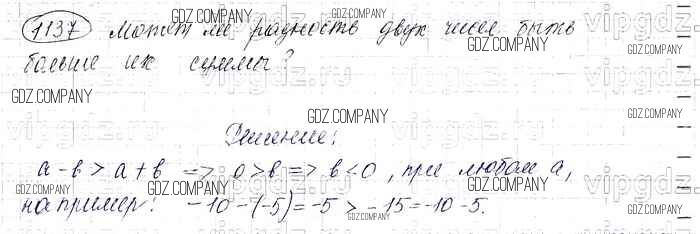 1137 Может ли разность двух чисел быть
больше их суммы?
Решение:
a - b > a + b => 0 > b => b < 0, при любом a,
например: -10-(-5)=-5 > -15=-10-5.
GDZ.COMPANY
GDZ.COMPANY
GDZ.COMPANY
GDZ.COMPANY
GDZ.COMPANY
GDZ.COMPANY
GDZ.COMPANY
GDZ.COMPANY
GDZ.COMPANY
vipgdz.ru
vipgdz.ru
vipgdz.ru
vipgdz.ru